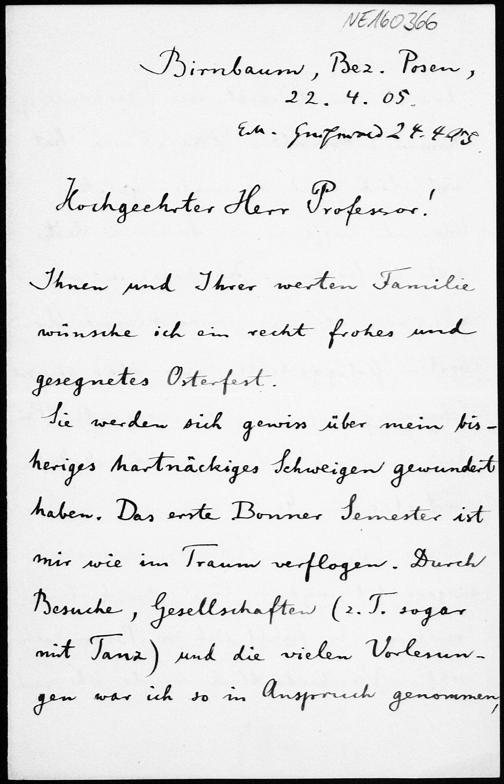 NE160366
Birnbaum, Bez. Posen,
22. 4. 05.
Greifswald 24. 4. 05.
Hochgeehrter Herr Professor!
Ihnen und Ihrer werten Familie
wünsche ich ein recht frohes und
gesegnetes Osterfest.
Sie werden sich gewiss über mein bis-
heriges hartnäckiges Schweigen gewundert
haben. Das erste Bonner Semester ist
mir wie im Traum verflogen. Durch
Besuche, Gesellschaften (z. T. sogar
mit Tanz) und die vielen Vorlesun-
gen war ich so in Anspruch genommen,